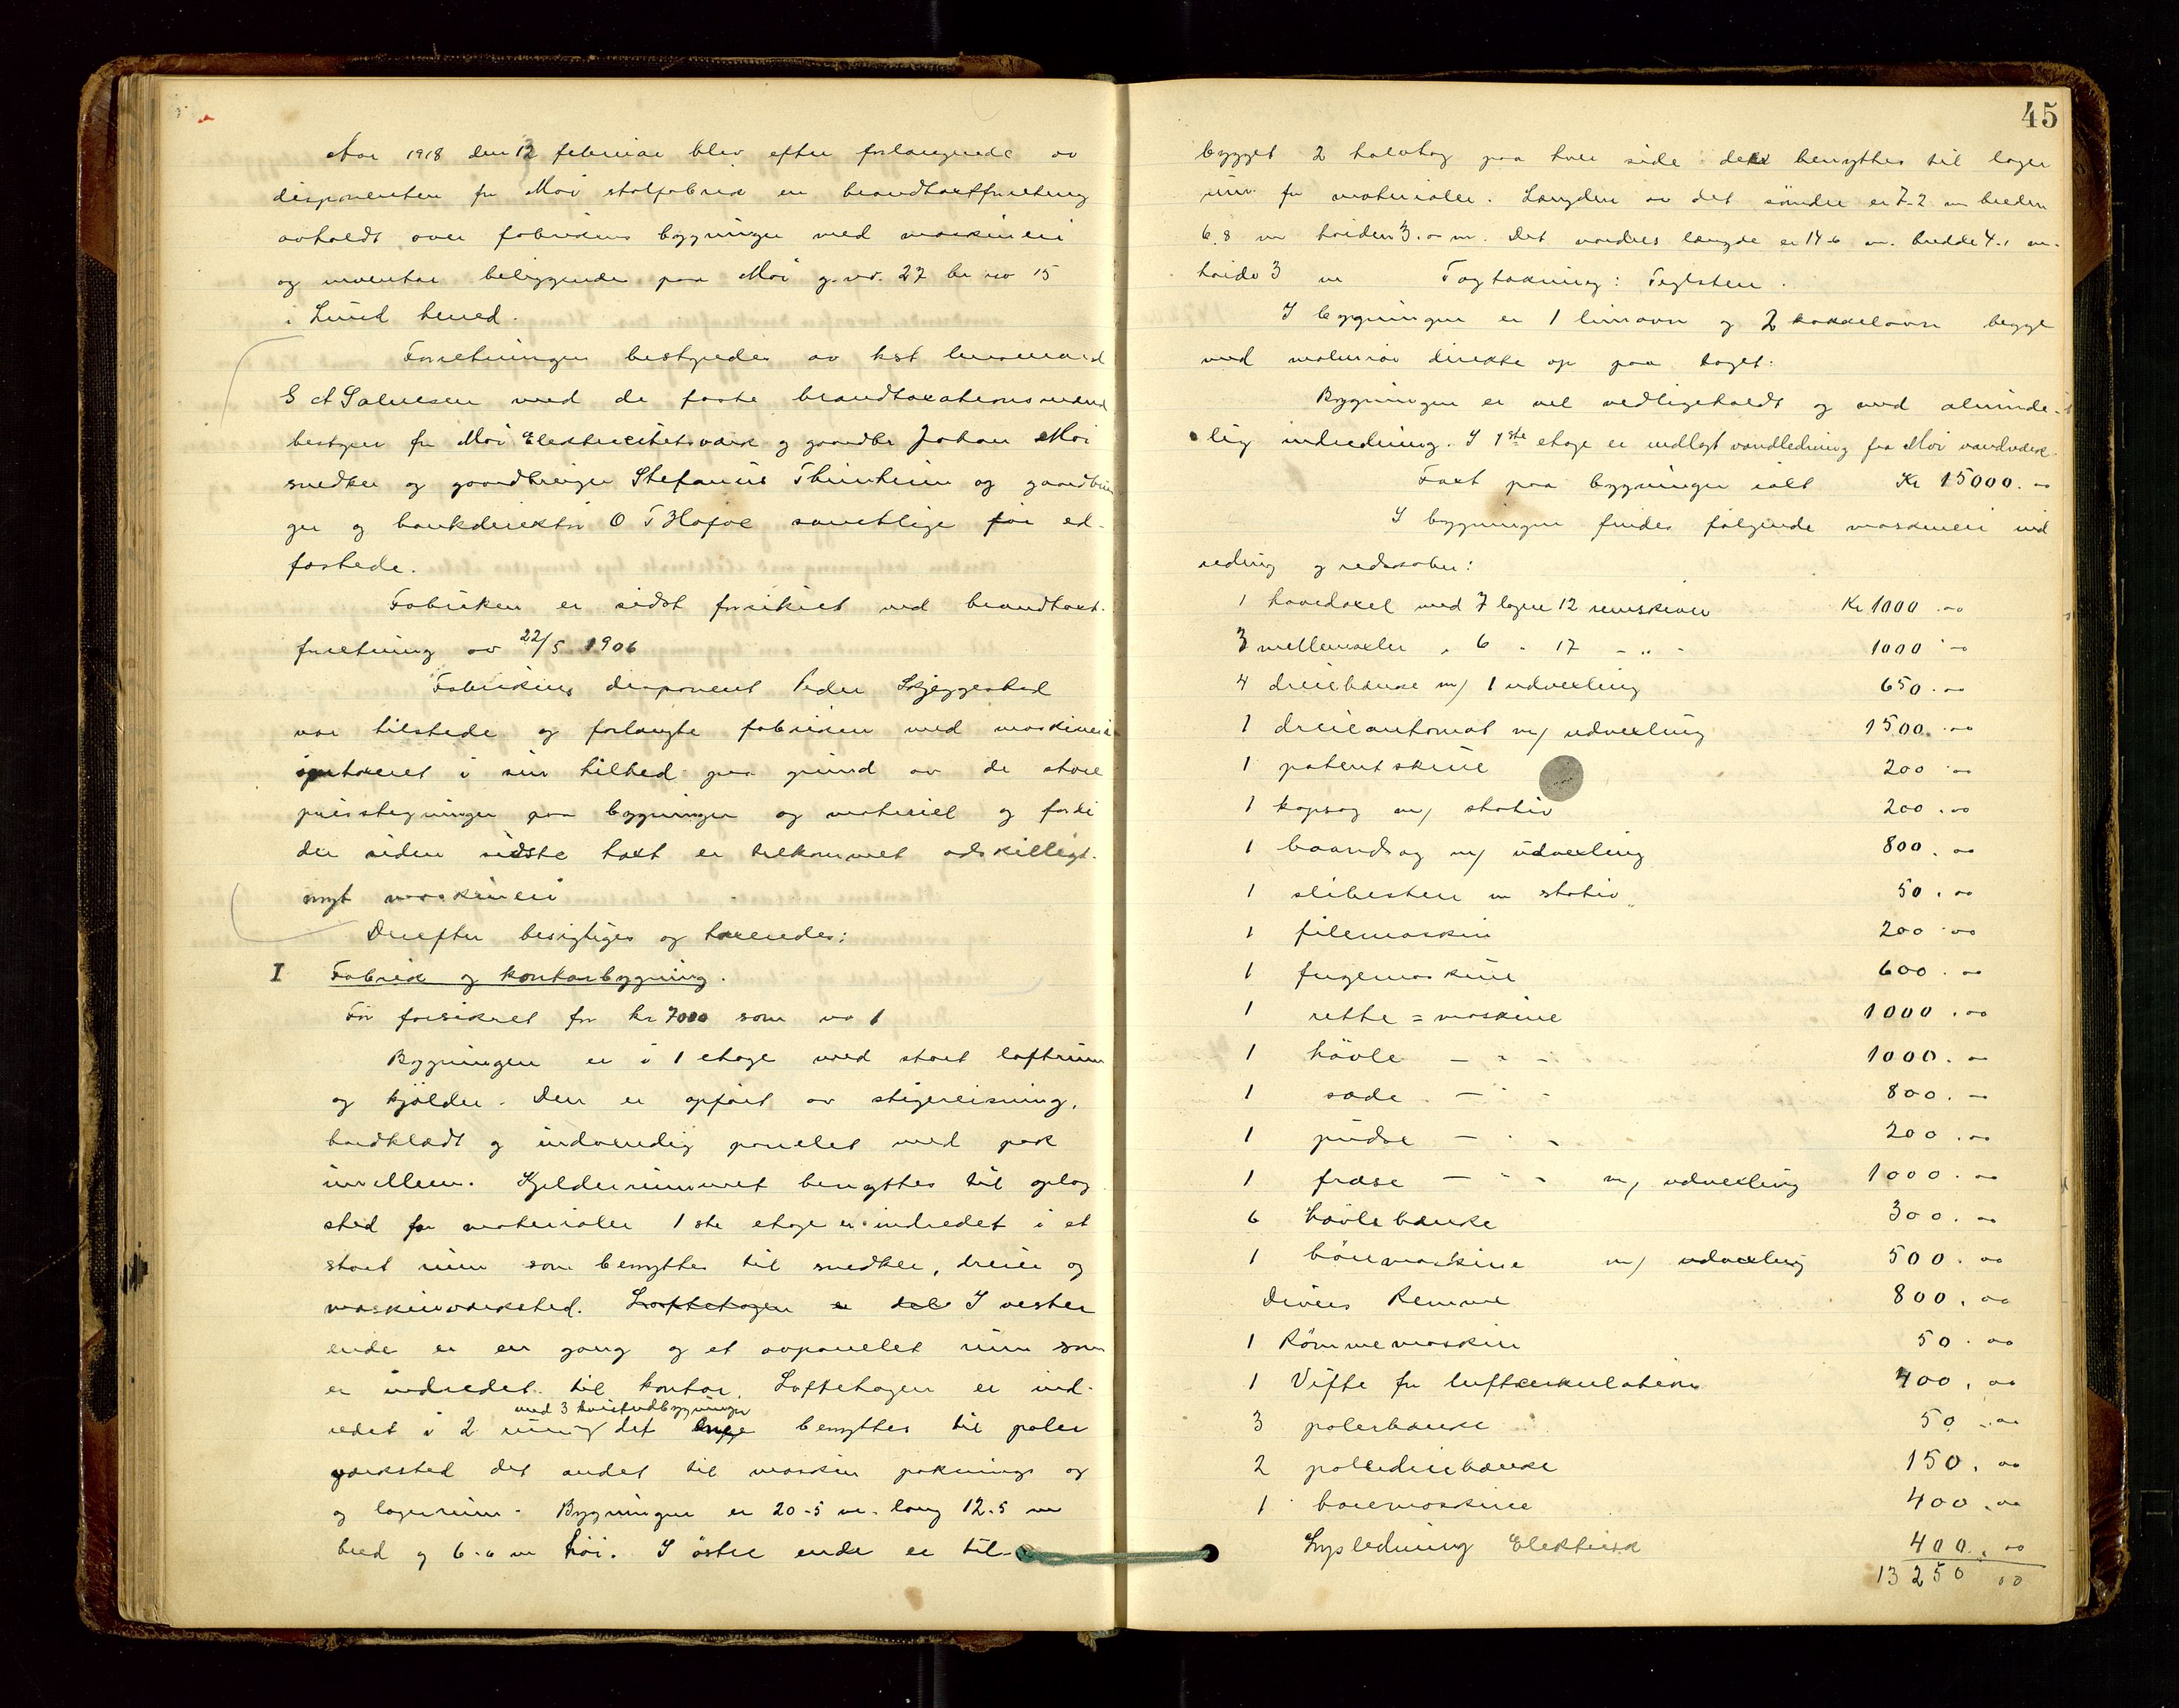 Aar 1918 den 12 februar blev efter forlangende av
disponenten for Moi stolfabrik en brandtaxtforretning
avholdt over fabrikens bygninger med maskineri
og inventar beliggende paa Moi g. no. 27 br no 15
i Lund herred.
Forretningen bestyredes av kst lensmand
S A Salvesen med de faste brandtaxationsmænd
bestyrer for Moi Elektricitetsværk og gaardbr Johan Moi
snedker og gaardbruger Stefanus Thunheim og gaardbru
ger og bankdirektör O T Hafsøe samtlige för ed-
fæstede.
Fabriken er sidst forsikret ved brandtaxt-
forretning av 22/5 1906
Fabrikens disponent Peder Skjeggestad
var tilstede og forlangte fabriken med maskineri
i sin helhed paa grund av de store
prisstigninger paa bygninger og materiel og fordi
der siden sidste taxt er tilkommet adskilligt
nyt maskineri
Derefter besigtiges og taxeredes:
I Fabrik og kontorbygning.
För forsikret for kr 7000 som no 1
Bygningen er i 1 etage med stort loftrum
og kjælder. Den er opført av stigereisning,
bordklædt og indvendig panelet med pap
imellem. Kjelderrummet benyttes til oplag
sted for materialer 1ste etage er indredet i et
stort rum som benyttes til snedker, dreier og
maskinværksted. Loftetagen er dels I vestre
ende er en gang og et avpanelet rum som
er indredet til kontor. Loftetagen er ind-
med 3 kvistudbygninger
redet i 2 rum det ene benyttes til poler
værksted det andet til maskin paknings og
og lagerrum. Bygningen er 20.5 m. lang 12.5 m
bred og 6.6 m höi. I östre ende er til-
45
bygget 2 halvtag paa hver side der benyttes til lager
rum for materialer. Længden av det söndre er 7.2 m bredden
6.8 m höiden 3.0 m. Det nordres længde er 14.6 m. bredde 4.1 m.
höide 3 m Tagtækning: Teglsten.
I bygningen er 1 limovn og 2 kakkelovn begge
med materiör direkte op paa taget.
Bygningen er vel vedligeholdt og med alminde-
lig indredning. I 1ste etage er indlagt vandledning fra Moi vandværk.
Taxt paa bygningen ialt Kr 15000.00
I bygningen findes følgende maskineri ind
redning og redskaber:
1 hovedaxel med 7 lagre 12 remskiver Kr 1000.00
3 mellemaxler " 6 " 17 - " - 1000.00
4 dreiebænke m/ 1 udvexling 650.00
1 dreieautomat m/ udvexling 1500.00
1 patentskive 200.00
1 kapsag m/ stativ 200.00
1 baandsag m/ udvexling 800.00
1 slibesten m stativ 50.00
1 filemaskin 200.00
1 fugemaskine 600.00
1 rette = maskine 1000.00
1 hövle - " - 1000.00
1 sæde - " - 800.00
1 pudse - " - 200.00
1 fræse - " - m/ udvexling 1000.00
6 hövlebænke 300.00
1 böremaskine m/ udvexling 500.00
Divers Remme 800.00
1 Römmemaskin 50.00
1 Vifte for luftcirkulation 400.00
3 polerbænke 50.00
2 polerdreiebænke 150.00
1 boremaskine 400.00
Lysledning Elektrisk 400.00
13250 00